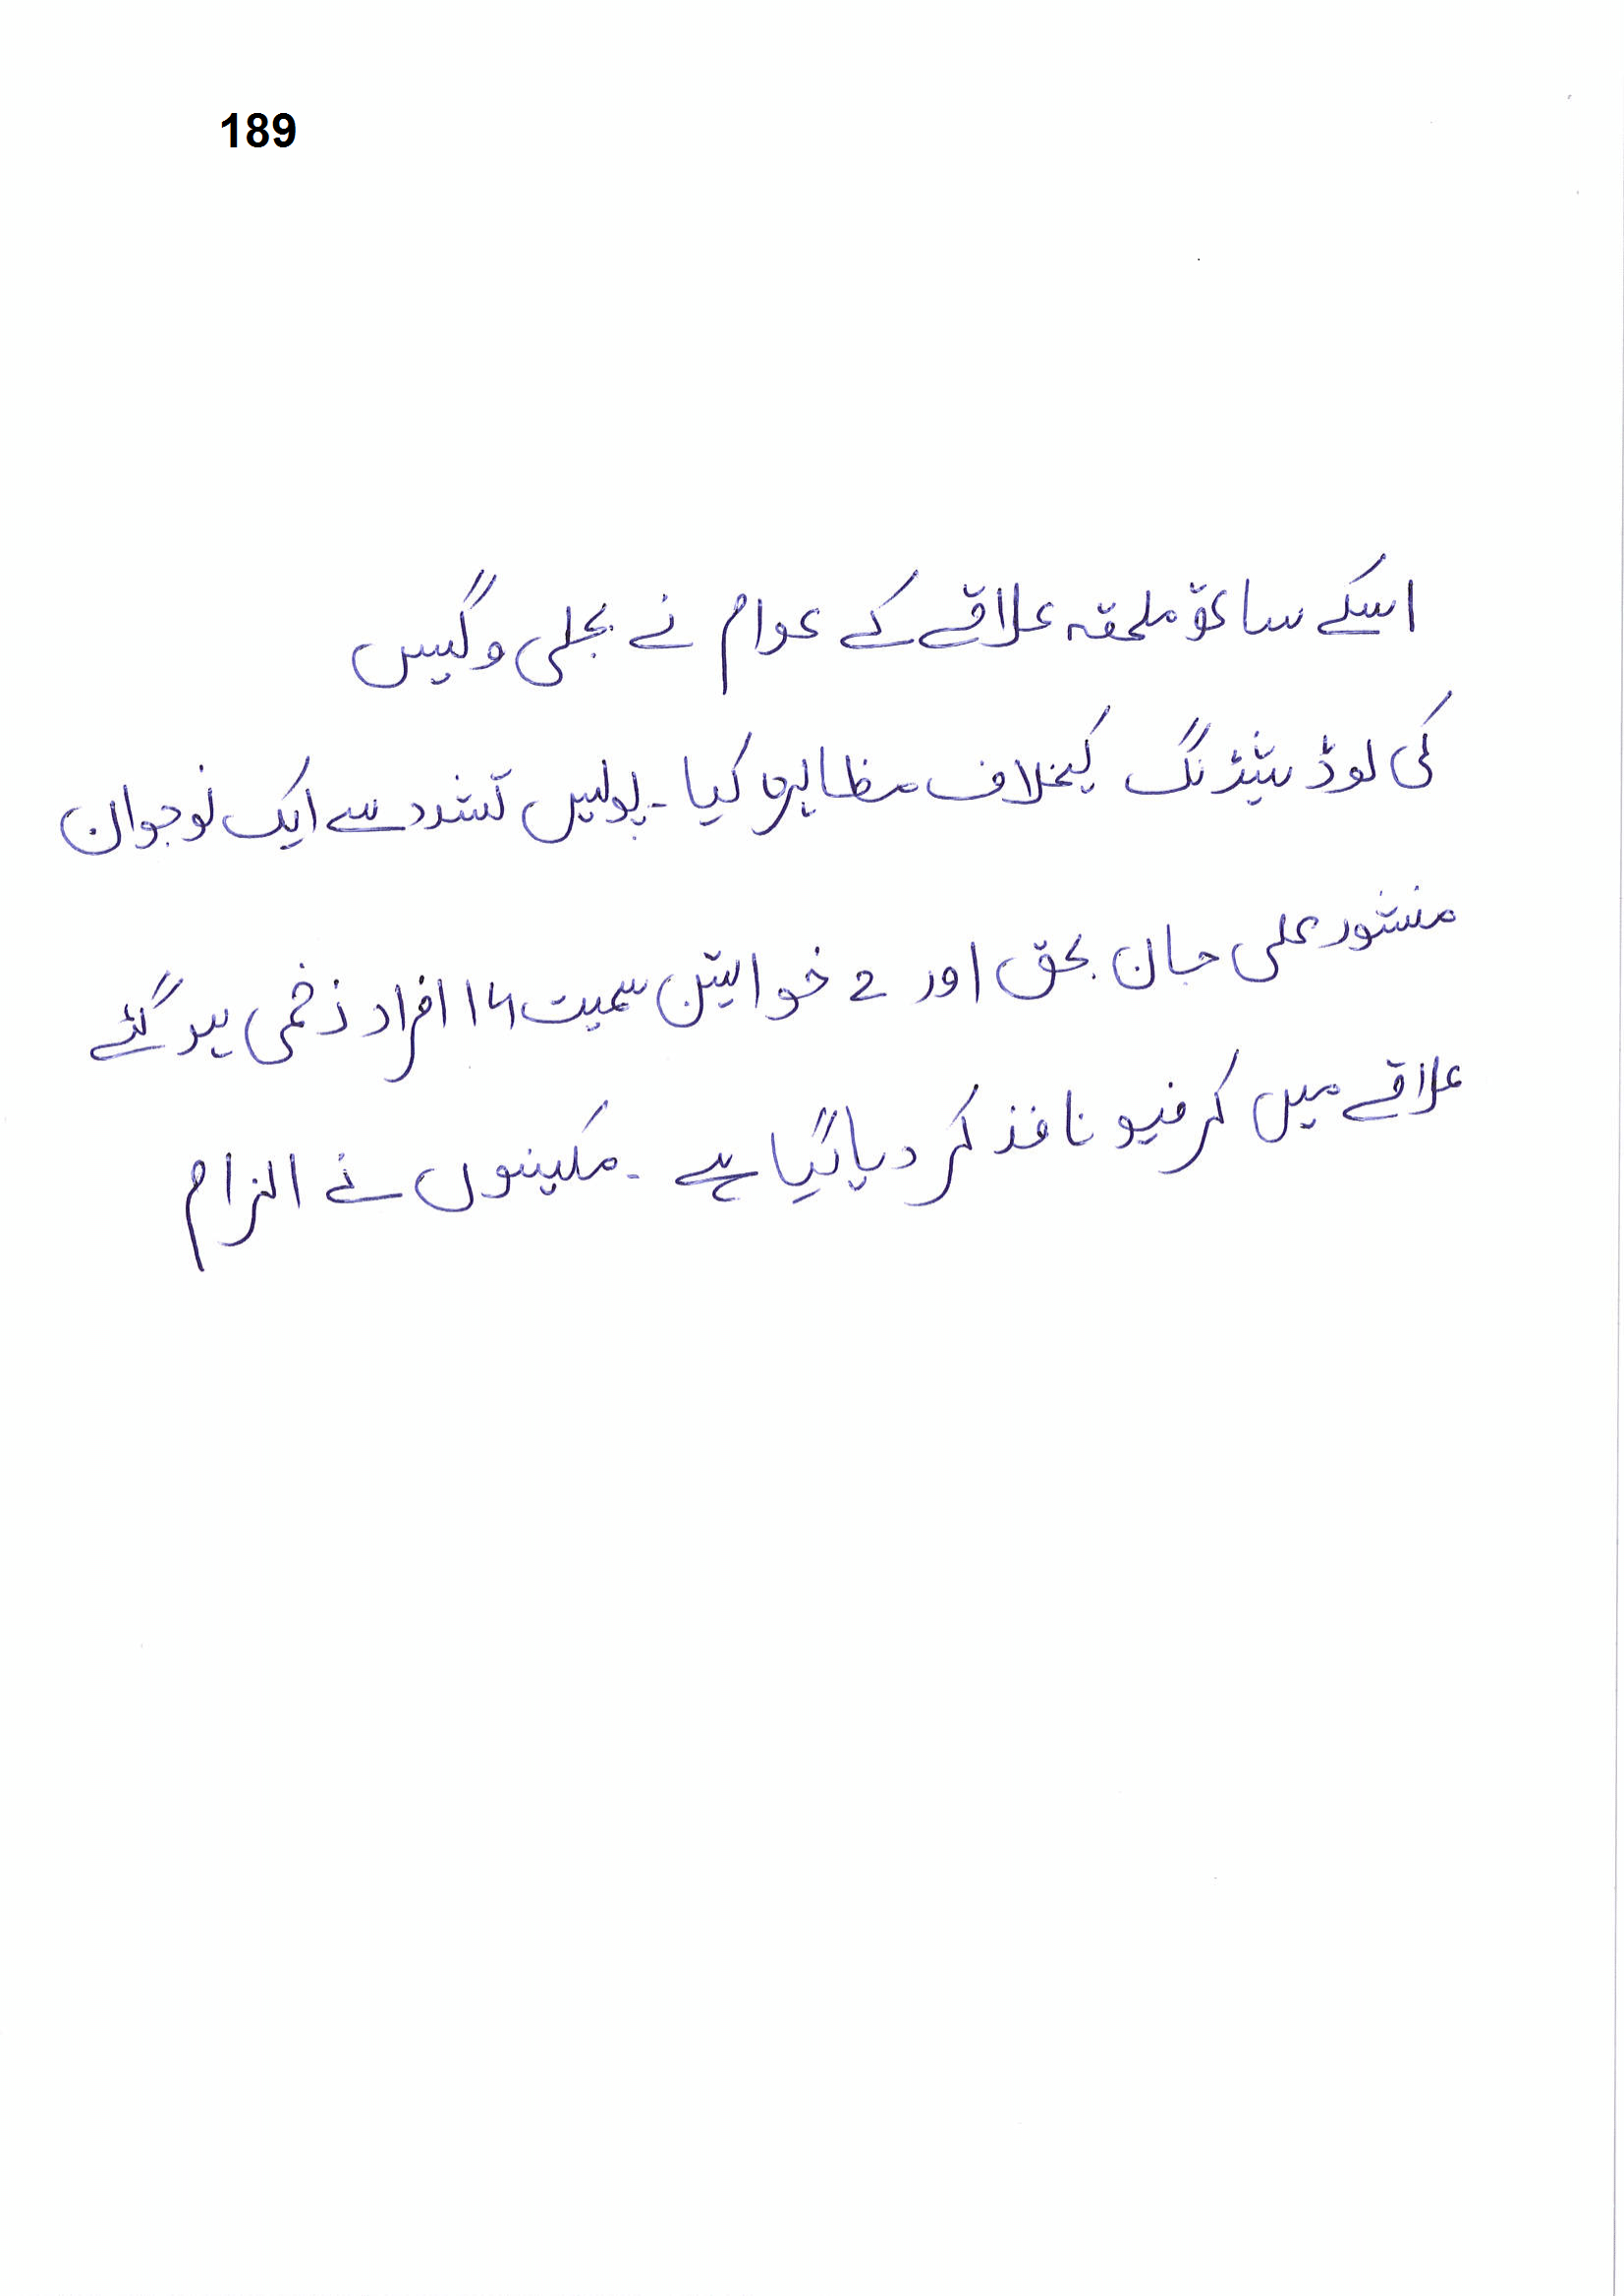 189
اسکے ساتھ ملحقہ علاقے کے عوام نے بجلی و گیس
کی لوڈ شیڈنگ کیخلاف مظاہرہ کیا۔ پولیس تشدد سے ایک نوجوان
منشور علی جان بحق اور 2 خواتین سمیت افراد زخمی ہو گئے
علاقے میں کرفیو نافذ کر دیا گیا ہے ۔ مکینوں نے الزام